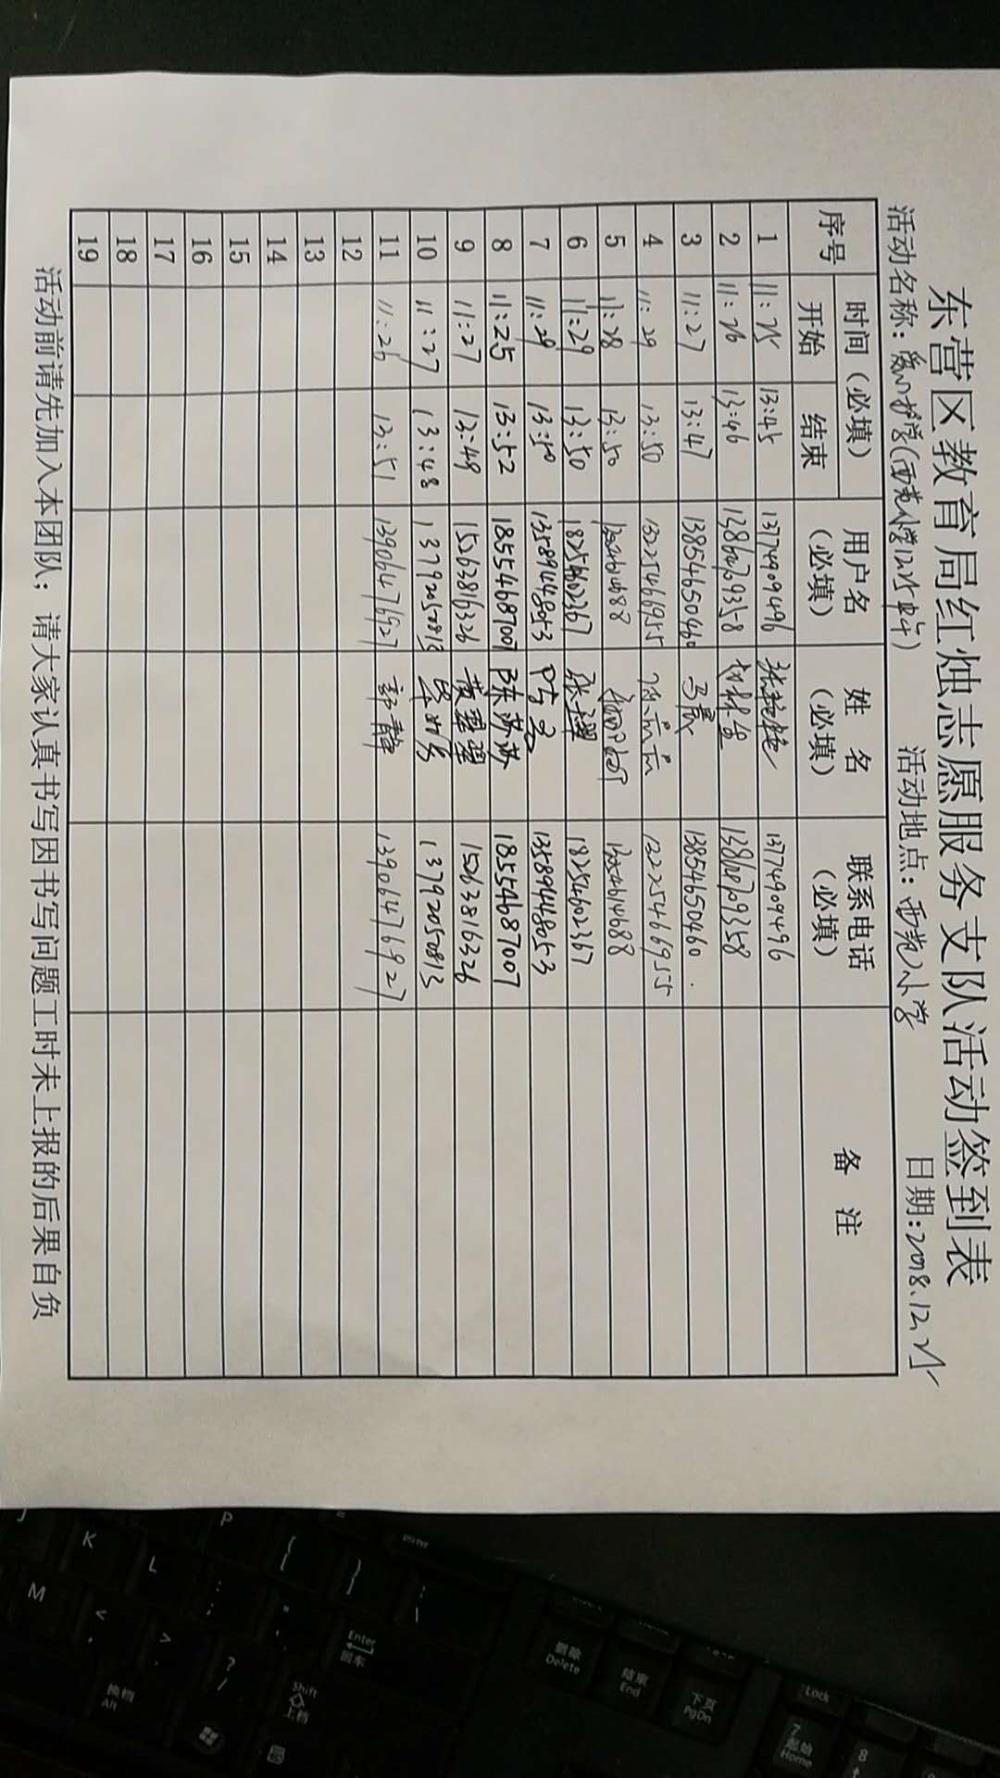 东营区教育局红烛志愿服务支队活动签到表
活动名称：爱心护学(西苑小学12.25中午) 活动地点：西苑小学 日期：2018.12.25
序号 时间（必填） 用户名（必填） 姓 名（必填） 联系电话（必填） 备 注
开始 结束
1 11:25 13:45 13774909496 13774909496
2 11:26 13:46
3 11:27 13:47 13854650460 马晨 13854650460
4 11:29 13:50
5 11:28 13:50
6 11:29 13:50 18254602367 18254602367
7 11:29 13:50 13589448053 13589448053
8 11:25 13:52 18554687007 陈苏苏 18554687007
9 11:27 13:49 15063816326 黄翠翠 15063816326
10 11:27 13:48 13792050813 13792050813
11 11:26 13:51 13906476927 郭静 13906476927
12
13
14
15
16
17
18
19
活动前请先加入本团队；请大家认真书写因书写问题工时未上报的后果自负
P
K
L
M
Enter
回车
Shift
上档
换档
Alt
删除
Delete
结束
End
下页
PgDn
Lock
7
起始
Home
8